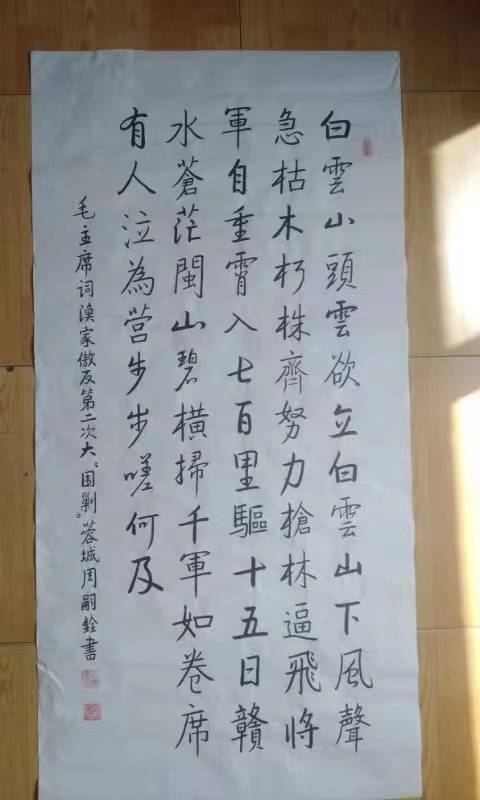 白雲山頭雲欲立白雲山下風聲
急枯木朽株齊努力槍林逼飛將
軍自重霄入七百里驅十五日贛
水蒼茫閩山碧橫掃千軍如卷席
有人泣為營步步嗟何及
毛主席词渔家傲反第二次大“围剿”蓉城周嗣銓書